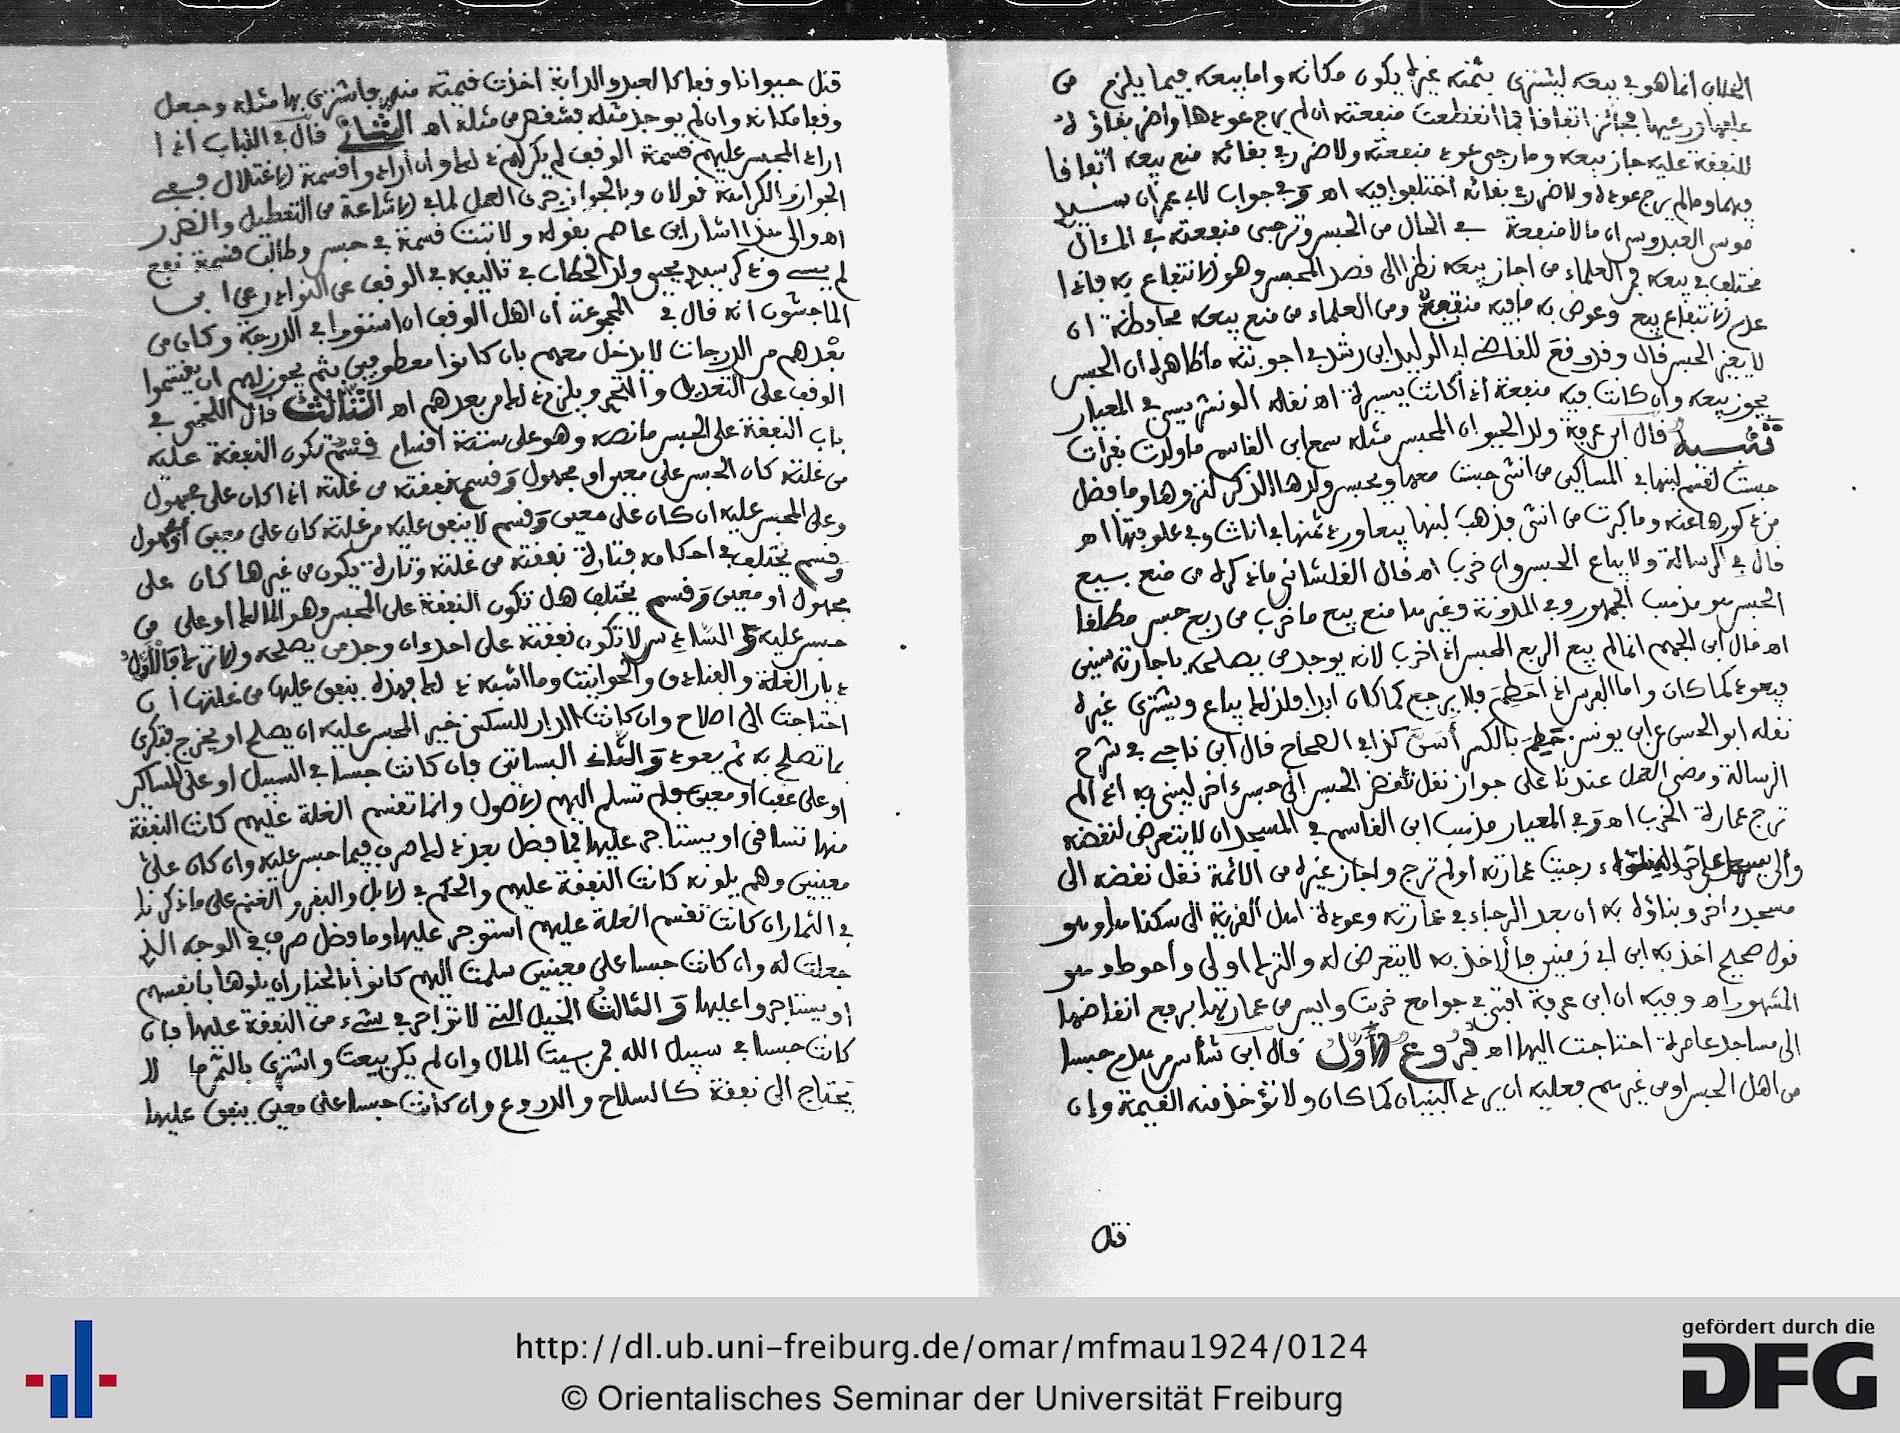 الخلاف انما هو في بيعه ليشترى بثمنه غيره يكون مكانه واما بيعه فيما يلزم من
علفها ورعيها فجائز اتفاقا فما انقطعت منفعته ان لم يرج عودها واضر بقاؤه
للنفقة عليه جاز بيعه وما رجى عود منفعته ولا ضرر في بقائه منع بيعه اتفاقا
فيهما وما لم يرج عوده ولا ضرر في بقائه اختلفوا فيه اه وفي جواب لابي عمران سيدي
موسى العبدوسي ان ما لا منفعة في الحال من الحبس وترجى منفعته في المئال
مختلف في بيعه فمن العلماء من اجاز بيعه نظرا الى قصد المحبس وهو الانتفاع به فاذا
عدم الانتفاع بيع وعوض به ما فيه منفعة ومن العلماء من منع بيعه محافظة ان
لا يغير الحبس قال وقد وقع للقاضي ابي الوليد ابن رشد في اجوبته ما ظاهره ان الحبس
يجوز بيعه وان كانت فيه منفعة اذا كانت يسيرة اه نقله الونشريسي في المعيار
تنبيه قال ابن عرفة ولد الحيوان المحبس مثله سمع ابن القاسم ما ولدت بقرات
حبست لقسم لبنها في المساكين من انثى حبست معها ويحبس ولدها الذكر لنزوها وما فضل
من ذكورها عنه وما كبرت من انثى فذهب لبنها بيعا ورد ثمنها في اناث او في علوفتها اه
قال في الرسالة ولا يباع الحبس وان خرب اه قال القلشاني ما ذكره من منع بيع
الحبس هو مذهب الجمهور وفي المدونة وغيرها منع بيع ما خرب من ربع حبس مطلقا
اه قال ابن الجهم انما لم يبع الربع المحبس اذا خرب لانه يوجد من يصلحه باجارته سنين
فيعود كما كان واما الفرس اذا احطم فلا يرجع كما كان ابدا فلذلك يباع ويشترى غيره
نقله ابو الحسن عن ابن يونس حطم بالكسر أسن كذا في الصحاح قال ابن ناجي في شرح
الرسالة ومضى العمل عندنا على جواز نقل نقض الحبس الى حبس ءاخر ليبنى به اذا لم
ترج عمارة الخرب اه وفي المعيار مذهب ابن القاسم في المسجد ان لا يتعرض لنقضه
رجيت عمارته او لم ترج واجاز غيره من الائمة نقل نقضه الى
مسجد ءاخر وبناؤه به ان بعد الرجاء في عمارته وعودة اهل القرية الى سكناها وهو
قول صحيح اخذ به ابن ابي زمنين فالأخذ به لا يتعرض له والترك اولى وأحوط وهو
المشهور اه وفيه ان ابن عرفة افتى في جوامع خربت وايس من عمارتها برفع انقاضها
الى مساجد عامرة احتاجت اليها اه فروع الأول قال ابن شأس من هدم حبسا
من اهل الحبس او من غيرهم فعليه ان يرد البنيان كما كان ولا تؤخذ منه القيمة وإن
قتل حيوانا وقفا كالعبد والدابة اخذت قيمته منه فاشترى بها مثله وجعل
وقفا مكانه وان لم يوجد مثله فشقص من مثله اه الثاني قال في اللباب اذا
اراد المحبس عليهم قسمة الوقف لم يكن لهم ذلك وان ارادوا قسمة الاغتلال ففي
الجواز والكراهة قولان وبالجواز جرى العمل لما في الاشاعة من التعطيل والضرر
اه والى هذا اشار ابن عاصم بقوله ولا تبت قسمة في حبس وطالب قسمة نفع
لم يسي وذكر سيدي يحيى ولد الحطاب في تاليفه في الوقف عن النوادر عن ابن
الماجشون انه قال في المجموعة أن اهل الوقف ان استووا في الدرجة وكان من
بعدهم من الدرجات لا يدخل معهم بان كانوا معطوفين بثم يجوز لهم ان يقتسموا
الوقف على التعديل والتحري ويلزم ذلك من بعدهم اه الثالث قال اللخمي في
باب النفقة على الحبس ما نصه وهو على ستة اقسام قسم تكون النفقة عليه
من غلته كان الحبس على معين او مجهول وقسم نفقته من غلته اذا كان على مجهول
وعلى المحبس عليه ان كان على معين وقسم لا ينفق عليه من غلته كان على معين أو مجهول
وقسم يختلف في احكامه فتارة نفقته من غلته وتارة يكون من غيرها كان على
مجهول أو معين وقسم يختلف هل تكون النفقة على المحبس وهو المالك او على من
حبس عليه والسادس لا تكون نفقته على احد ان وجد من يصلحه والا ترك فالأول
ديار الغلة والفنادق والحوانيت وما اشبه ذلك فهذه ينفق عليها من غلتها ان
احتاجت الى اصلاح وان كانت الدار للسكنى خير المحبس عليه ان يصلح او يخرج فتكرى
بما تصلح به ثم يعود والثاني البساتين فان كانت حبسا في السبيل او على المساكن
او على عقب او معين فلم تسلم اليهم الاصول وانما تقسم الغلة عليهم كانت النفقة
منها تساقى او يستاجر عليها فما فضل بعد ذلك صرف فيما حبس عليه وان كان على
معينين وهم يلونه كانت النفقة عليهم والحكم في الابل والبقر والغنم على ما ذكرنا
في الثمار ان كانت تقسم الغلة عليهم استوجر عليها وما فضل صرف في الوجه الذي
جعلت له وان كانت حبسا على معينين سلمت اليهم كانوا بالخيار ان يلوها بانفسهم
او يستاجروا عليها والثالث الخيل التي لا تؤاجر في شيء من النفقة عليها فان
كانت حبسا في سبيل الله فمن بيت المال وان لم يكن بيعت واشترى بالثمن ما لا
يحتاج الى نفقة كالسلاح والدروع وان كانت حبسا على معين ينفق عليها
http://dl.ub.uni-freiburg.de/omar/mfmau1924/0124
© Orientalisches Seminar der Universität Freiburg
gefördert durch die
DFG